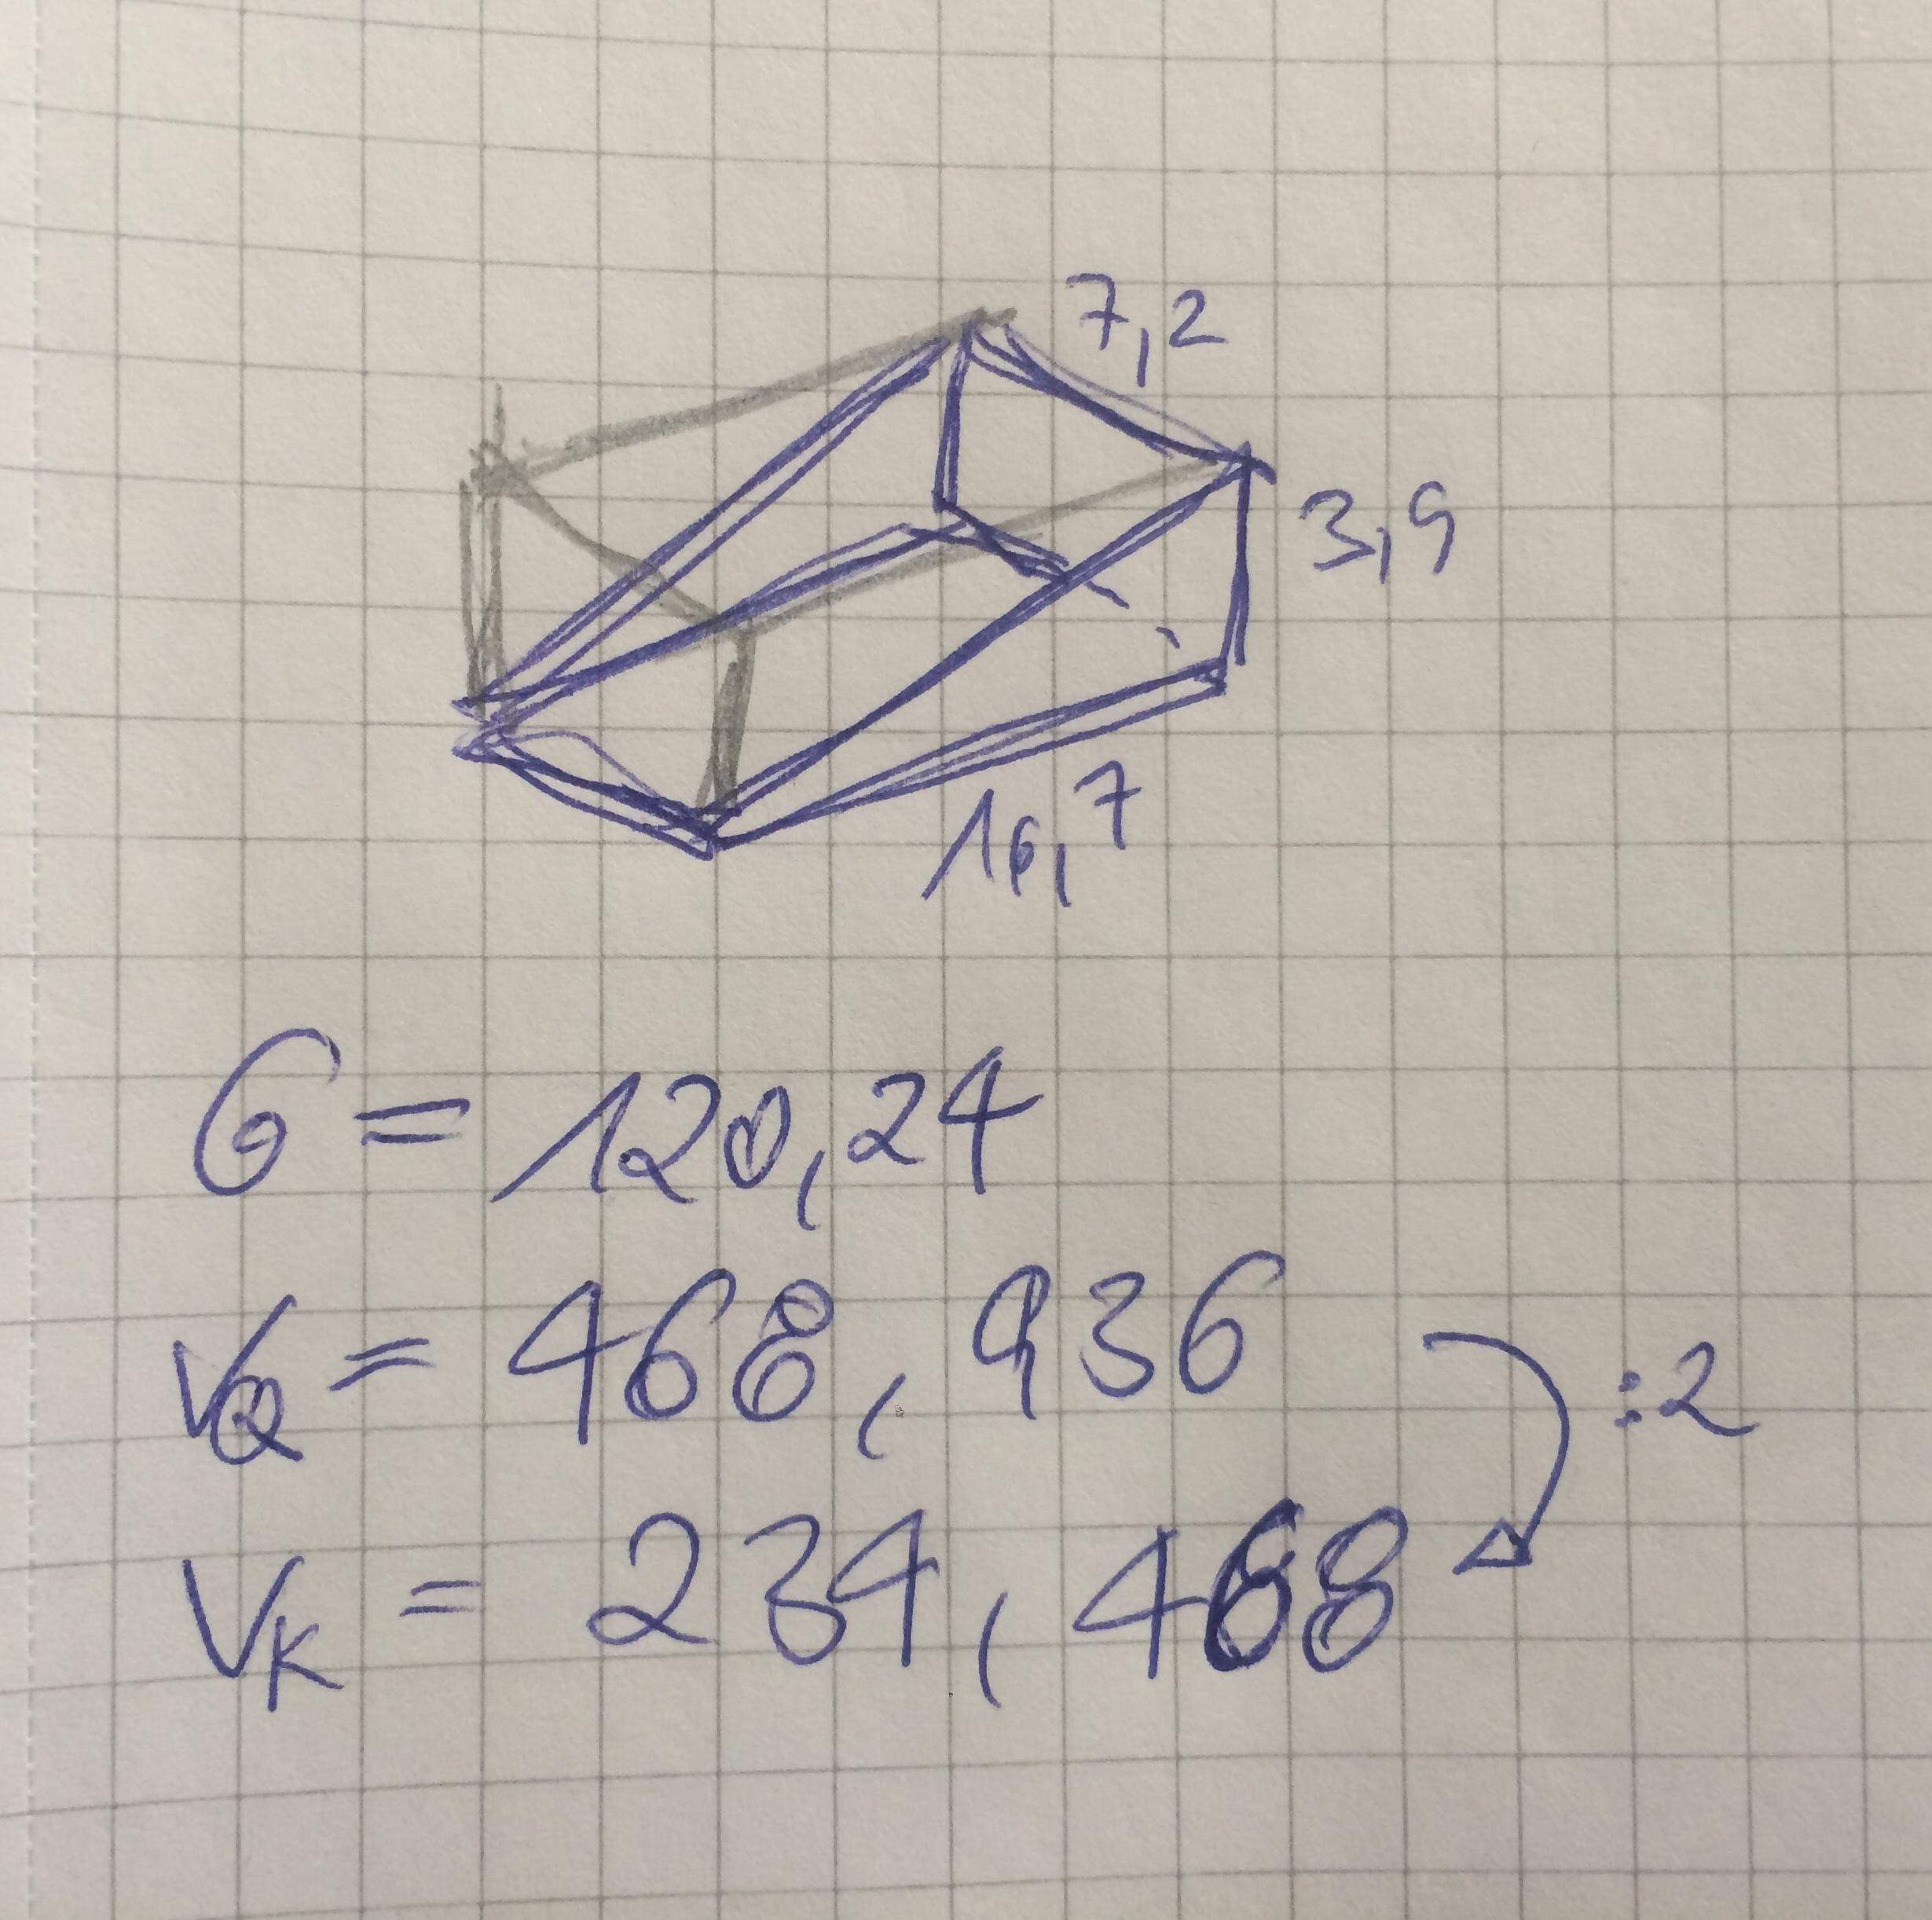 7,2
3,9
16,7
G = 120,24
VQ = 468,936
:2
VK = 234,468